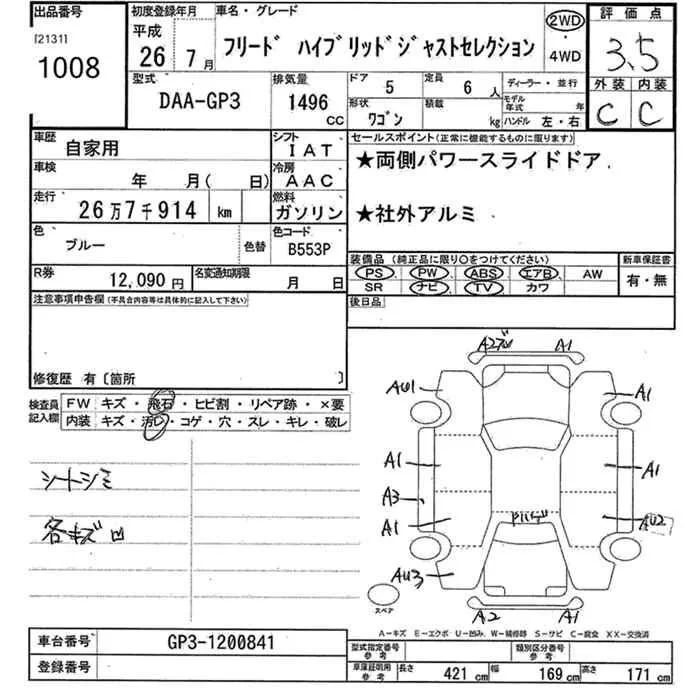 出品番号
[2131]
1008
初度登録年月
平成
26年 7月
車名・グレード
フリード ハイブリッドジャストセレクション
2WD
・
4WD
評価点
3.5
外装 内装
C C
型式
DAA-GP3
排気量
1496 cc
ドア 5
定員 6人
形状 ワゴン
積載 kg
ディーラー・並行
モデル年式 年
ハンドル 左・右
車歴 自家用
シフト IAT
車検 年 月( 日)
冷房 AAC
走行 26万7千914 km
燃料 ガソリン
色 ブルー 色替
色コード B553P
R券 12,090円
名変通知期限 月 日
セールスポイント(正常に機能するものに限ります)
★両側パワースライドドア
★社外アルミ
装備品 (純正品に限り○をつけてください)
PS PW ABS エアB AW
SR ナビ TV カワ
新車保証書
有・無
後日品
注意事項申告欄(不具合内容等は具体的に記入して下さい)
修復歴 有〔箇所 〕
検査員記入欄
FW キズ・飛石・ヒビ割・リペア跡・×要
内装 キズ・汚レ・コゲ・穴・スレ・キレ・破レ
シートシミ
各キズ凹
A1
AU1 A1
A1 A1
A3
A1 AU2
AU3
A2 A1
スペア
A-キズ E-エクボ U-凹み W-補修跡 S-サビ C-腐食 XX-交換済
車台番号 GP3-1200841
登録番号
型式指定番号 参考
類別区分番号 参考
車庫証明用 参考
長さ 421 cm 幅 169 cm 高さ 171 cm